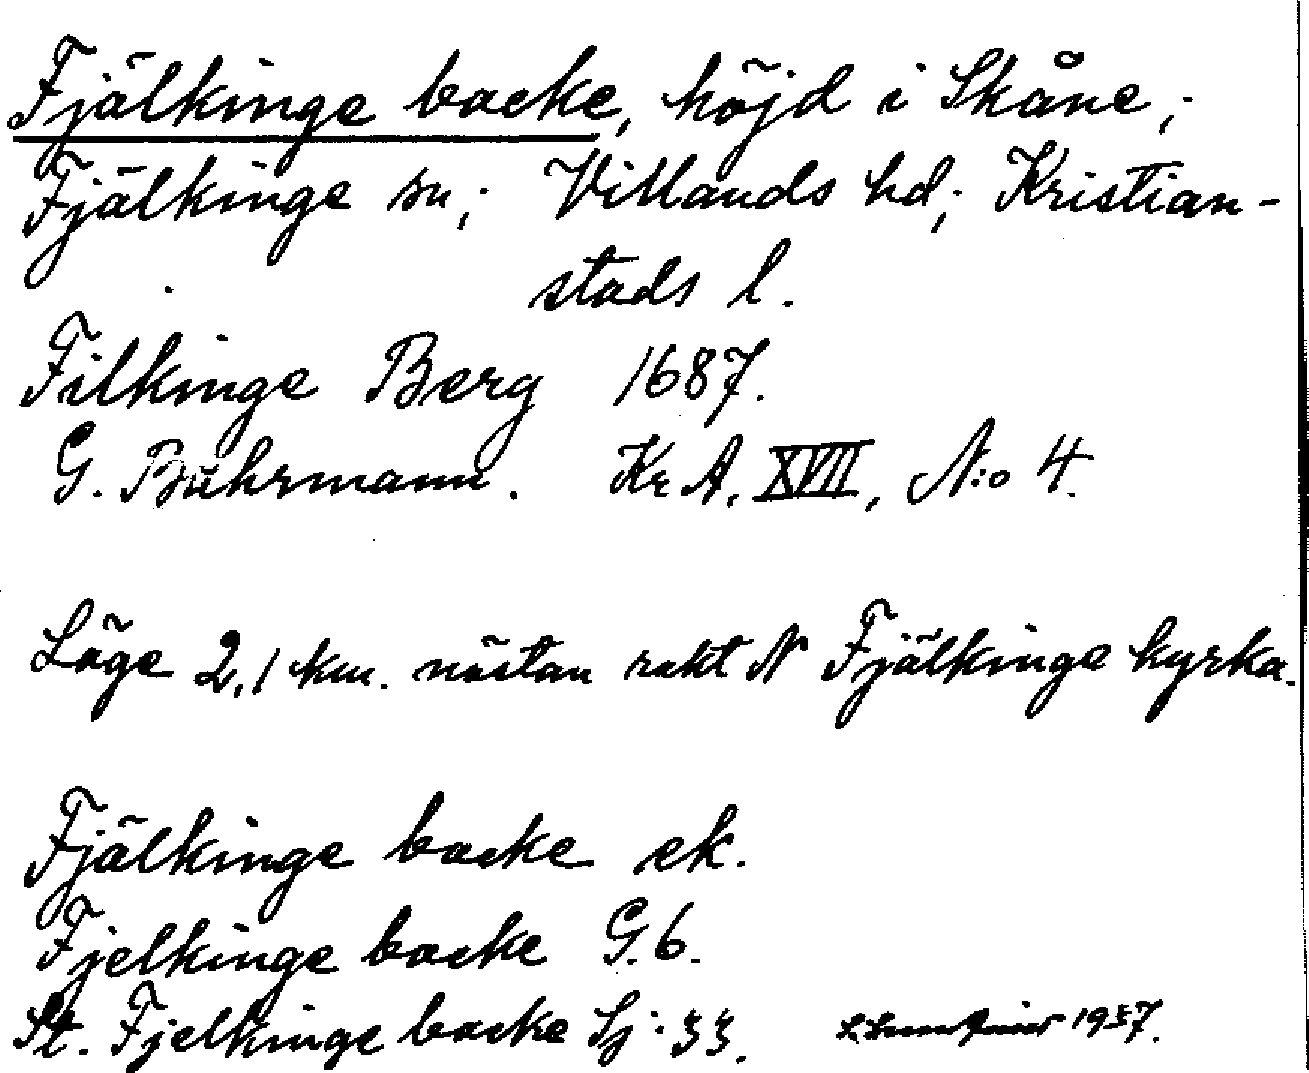 Fjälkinge backe, höjd i Skåne;
Fjälkinge sn; Villands hd; Kristian-
stads l.
Filkinge Berg 1687.
G. Buhrmann. Kr A, XVII, N:o 4.
Läge 2,1 km. nästan rakt N Fjälkinge kyrka.
Fjälkinge backe ek.
Fjelkinge backe G. 6.
St. Fjelkinge backe Sj: 33. 1937.